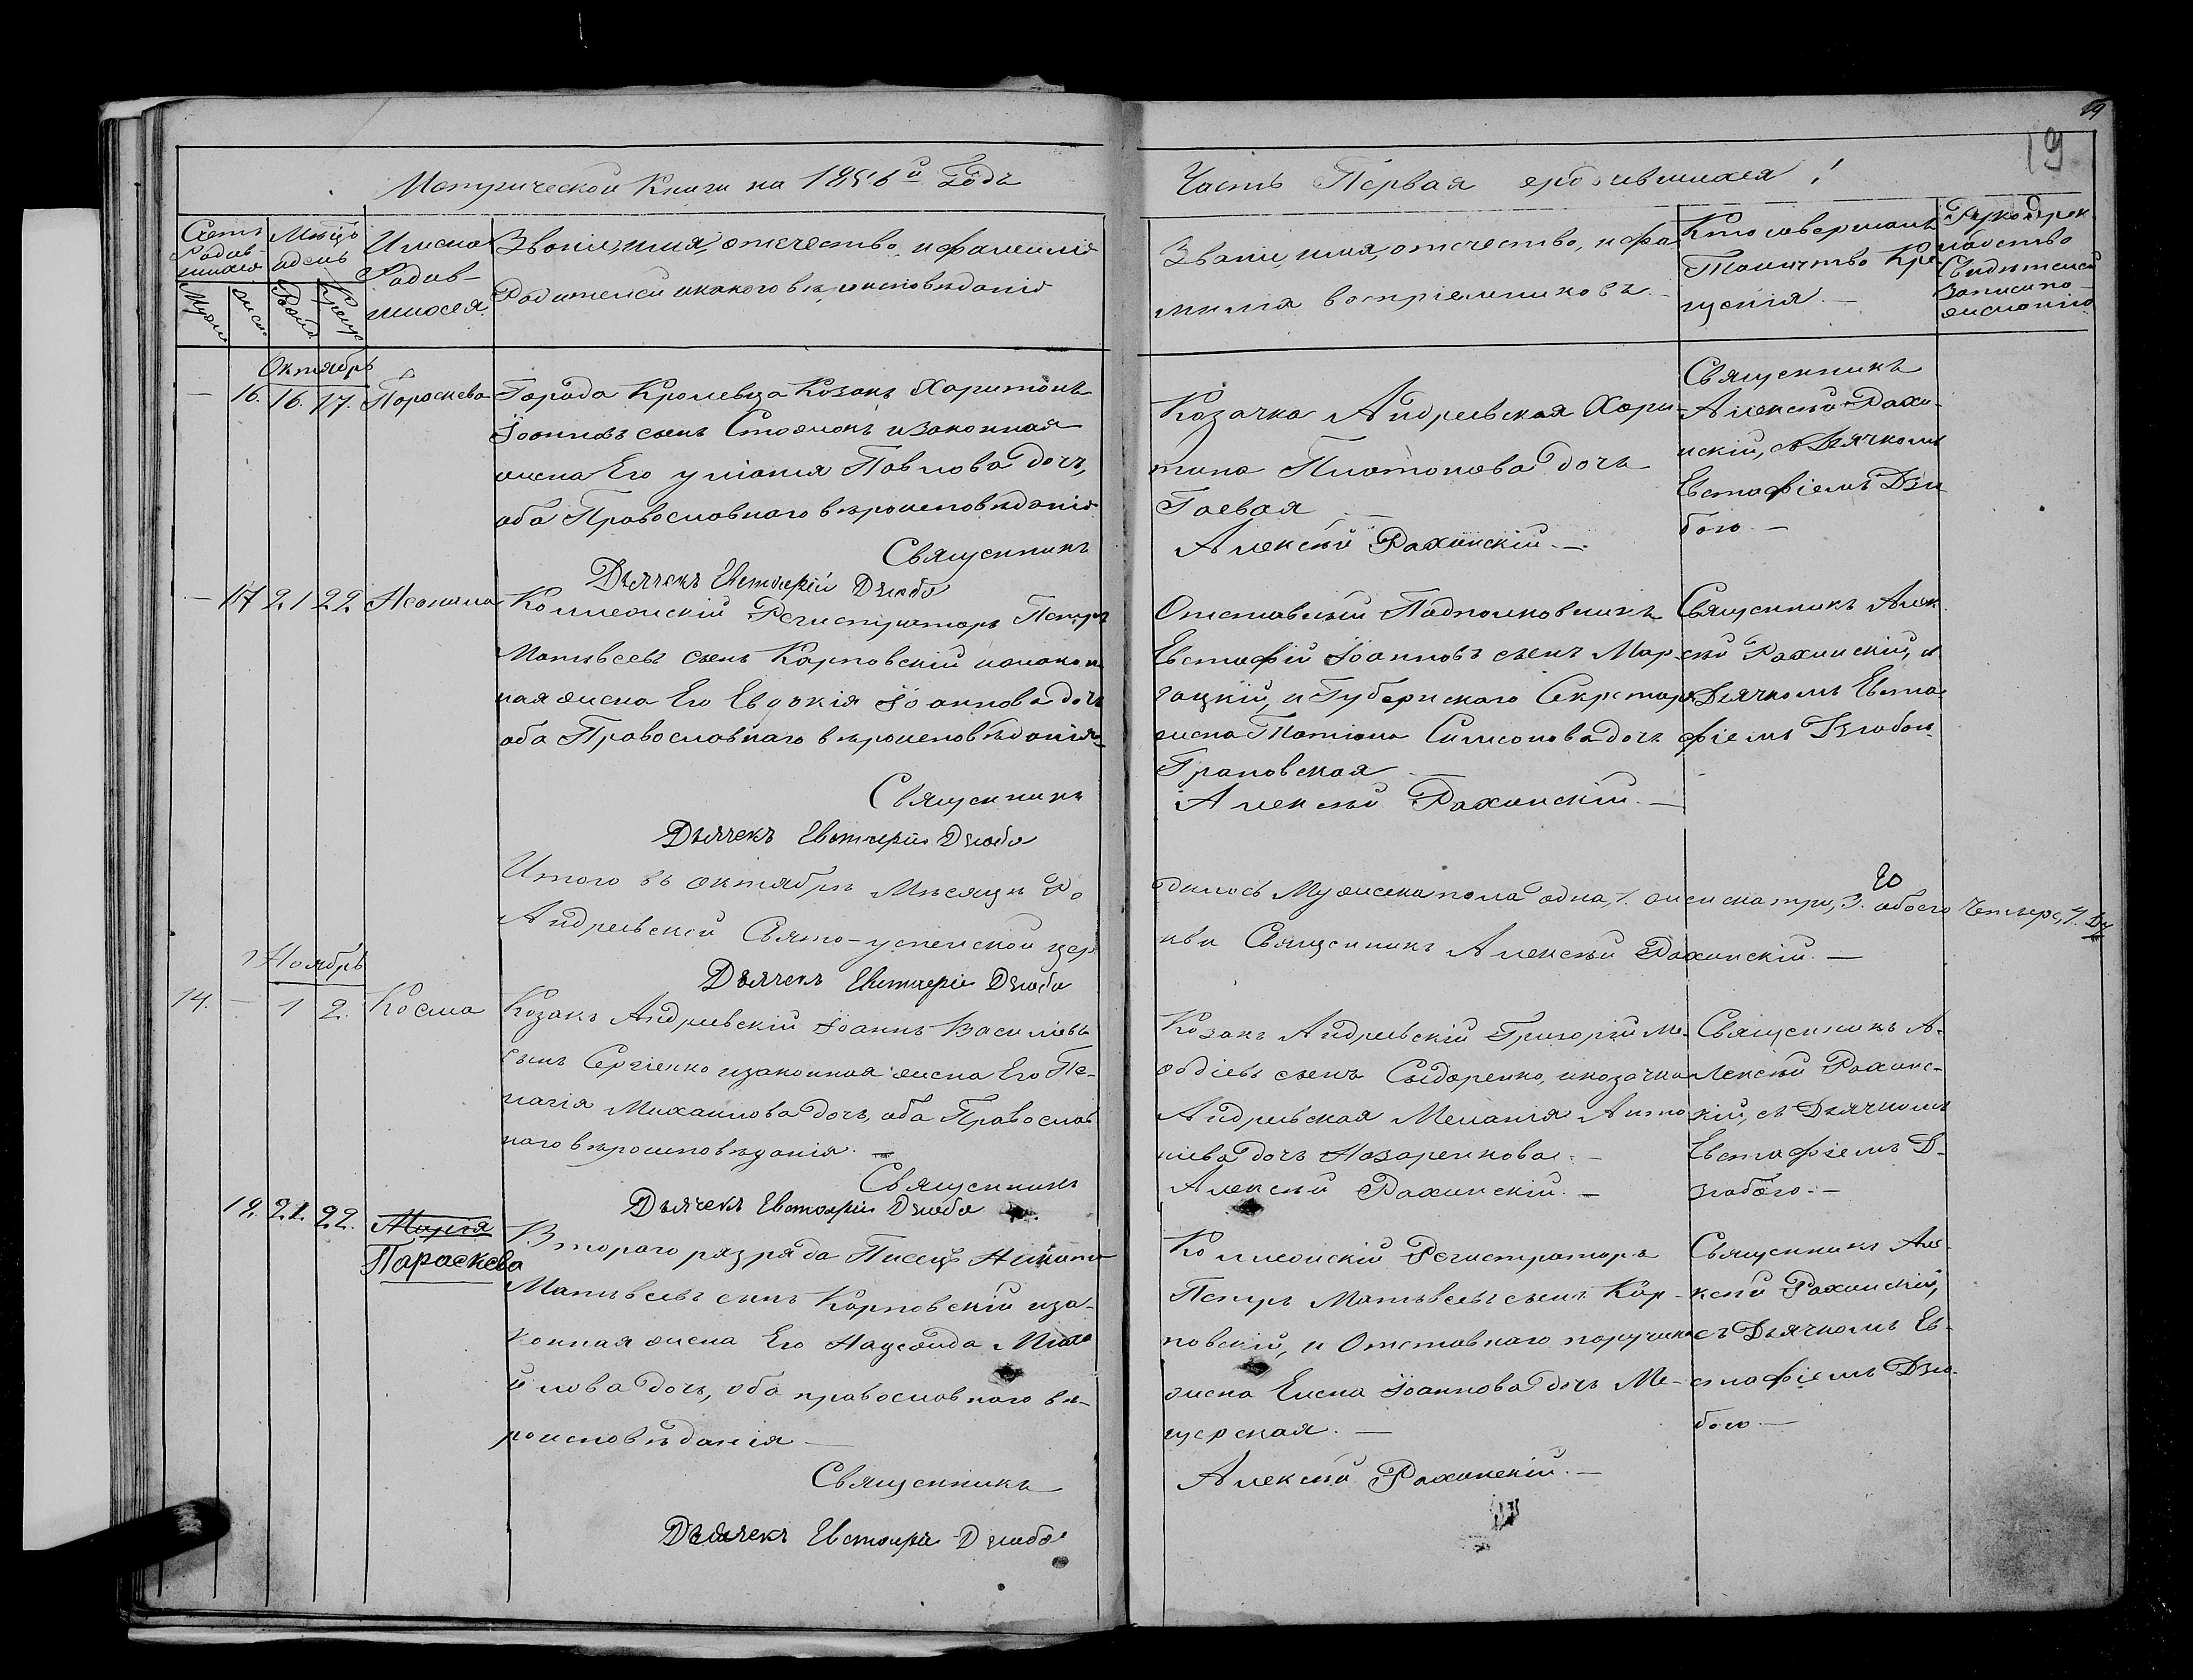 19
19
Метрической Книги на 1856й Годъ
Часть Первая ородившихся!
Счетъ Родившихся
Мѣсяцъ и день
Имена Родившихся.
Званіе, имя, отчество, и фамилія
Родителей и какого вѣроисповѣданія
Муж
женс
Рожд
Крещ
Званіе, имя, отчество, и фа
милія воспріемниковъ.
Кто совершалъ
Таинство Кре
щенія. —
Рукоприк
ладство
Свидѣтелей
записи по
желанію
Октябрь
— 16. 16. 17. Параскева
Города Кролевца Козакъ Харитонъ
Іоанновъ сынъ и законная
жена Его Уліанія Павлова дочь,
оба Православнаго вѣроисповѣданія.
Священникъ
Дьячекъ Евстафій Дзюба
Козачка Андреевская Хари-
тина Платонова дочь
Гаевая —
Алексѣй Рахинскій. —
Священникъ
Алексѣй Рахи-
нскій, съ Дьячкомъ
Евстафіемъ Дзю
бою. —
— 17 21 22 Неонила
Коллежскій Регистраторъ Петръ
Матвѣевъ сынъ Карповскій и закон
ная жена Его Евдокія Іоаннова дочь
оба Православнаго вѣроисповѣданія
Священникъ
Дьячекъ Евстафій Дзюба
Отставный Подполковникъ
Евстафій Іоанновъ сынъ Мар-
гацкій, и Губернскаго Секретаря
жена Татіана Симеонова дочь
Грановская —
Алексѣй Рахинскій. —
Священникъ Алек
сѣй Рахинскій, съ
Дьячкомъ Евста
фіемъ Дзюбою.
Итого въ октябрѣ Мѣсяцѣ Ро
дилось Мужеска пола одна, 1. женска три, 3. обоего четыре, 4. Ду
го
Андреевской Свято-успенской цер
кви Священникъ Алексѣй Рахинскій. —
Дьячекъ Евстафій Дзюба
Ноябрь
14. — 1 2. Косма
Козакъ Андреевскій Іоаннъ Василіевъ
сынъ Сергіенко и законная жена Его Пе-
лагія Михаилова дочь, оба Православ
наго вѣроисповѣданія. —
Священникъ
Дьячекъ Евстафій Дзюба
Козакъ Андреевскій Григорій Ме-
ѳодіевъ сынъ Сыдоренко, и козачка
Андреевская Меланія Анто
ніева дочь Назаренкова. —
Алексѣй Рахинскій. —
Священникъ А-
лексѣй Рахинс-
кій, съ Дьячкомъ
Евстафіемъ Д-
зюбою. —
18. 21. 22. Марія
Параскева
Втораго разряда Писецъ Никита
Матвѣевъ сынъ Карповскій и за-
конная жена Его Надежда Миха
йлова дочь, оба православнаго вѣ-
роисповѣданія —
Священникъ
Дьячекъ Евстафій Дзюба
Коллежскій Регистраторъ
Петръ Матвѣевъ сынъ Кар-
повскій, и Отставнаго поручика
жена Елена Іоаннова дочь Ме-
щерская. —
Алексѣй Рахинскій. —
Священникъ Але-
ксѣй Рахинскій,
съ Дьячкомъ Ев-
стафіемъ Дзю-
бою. —